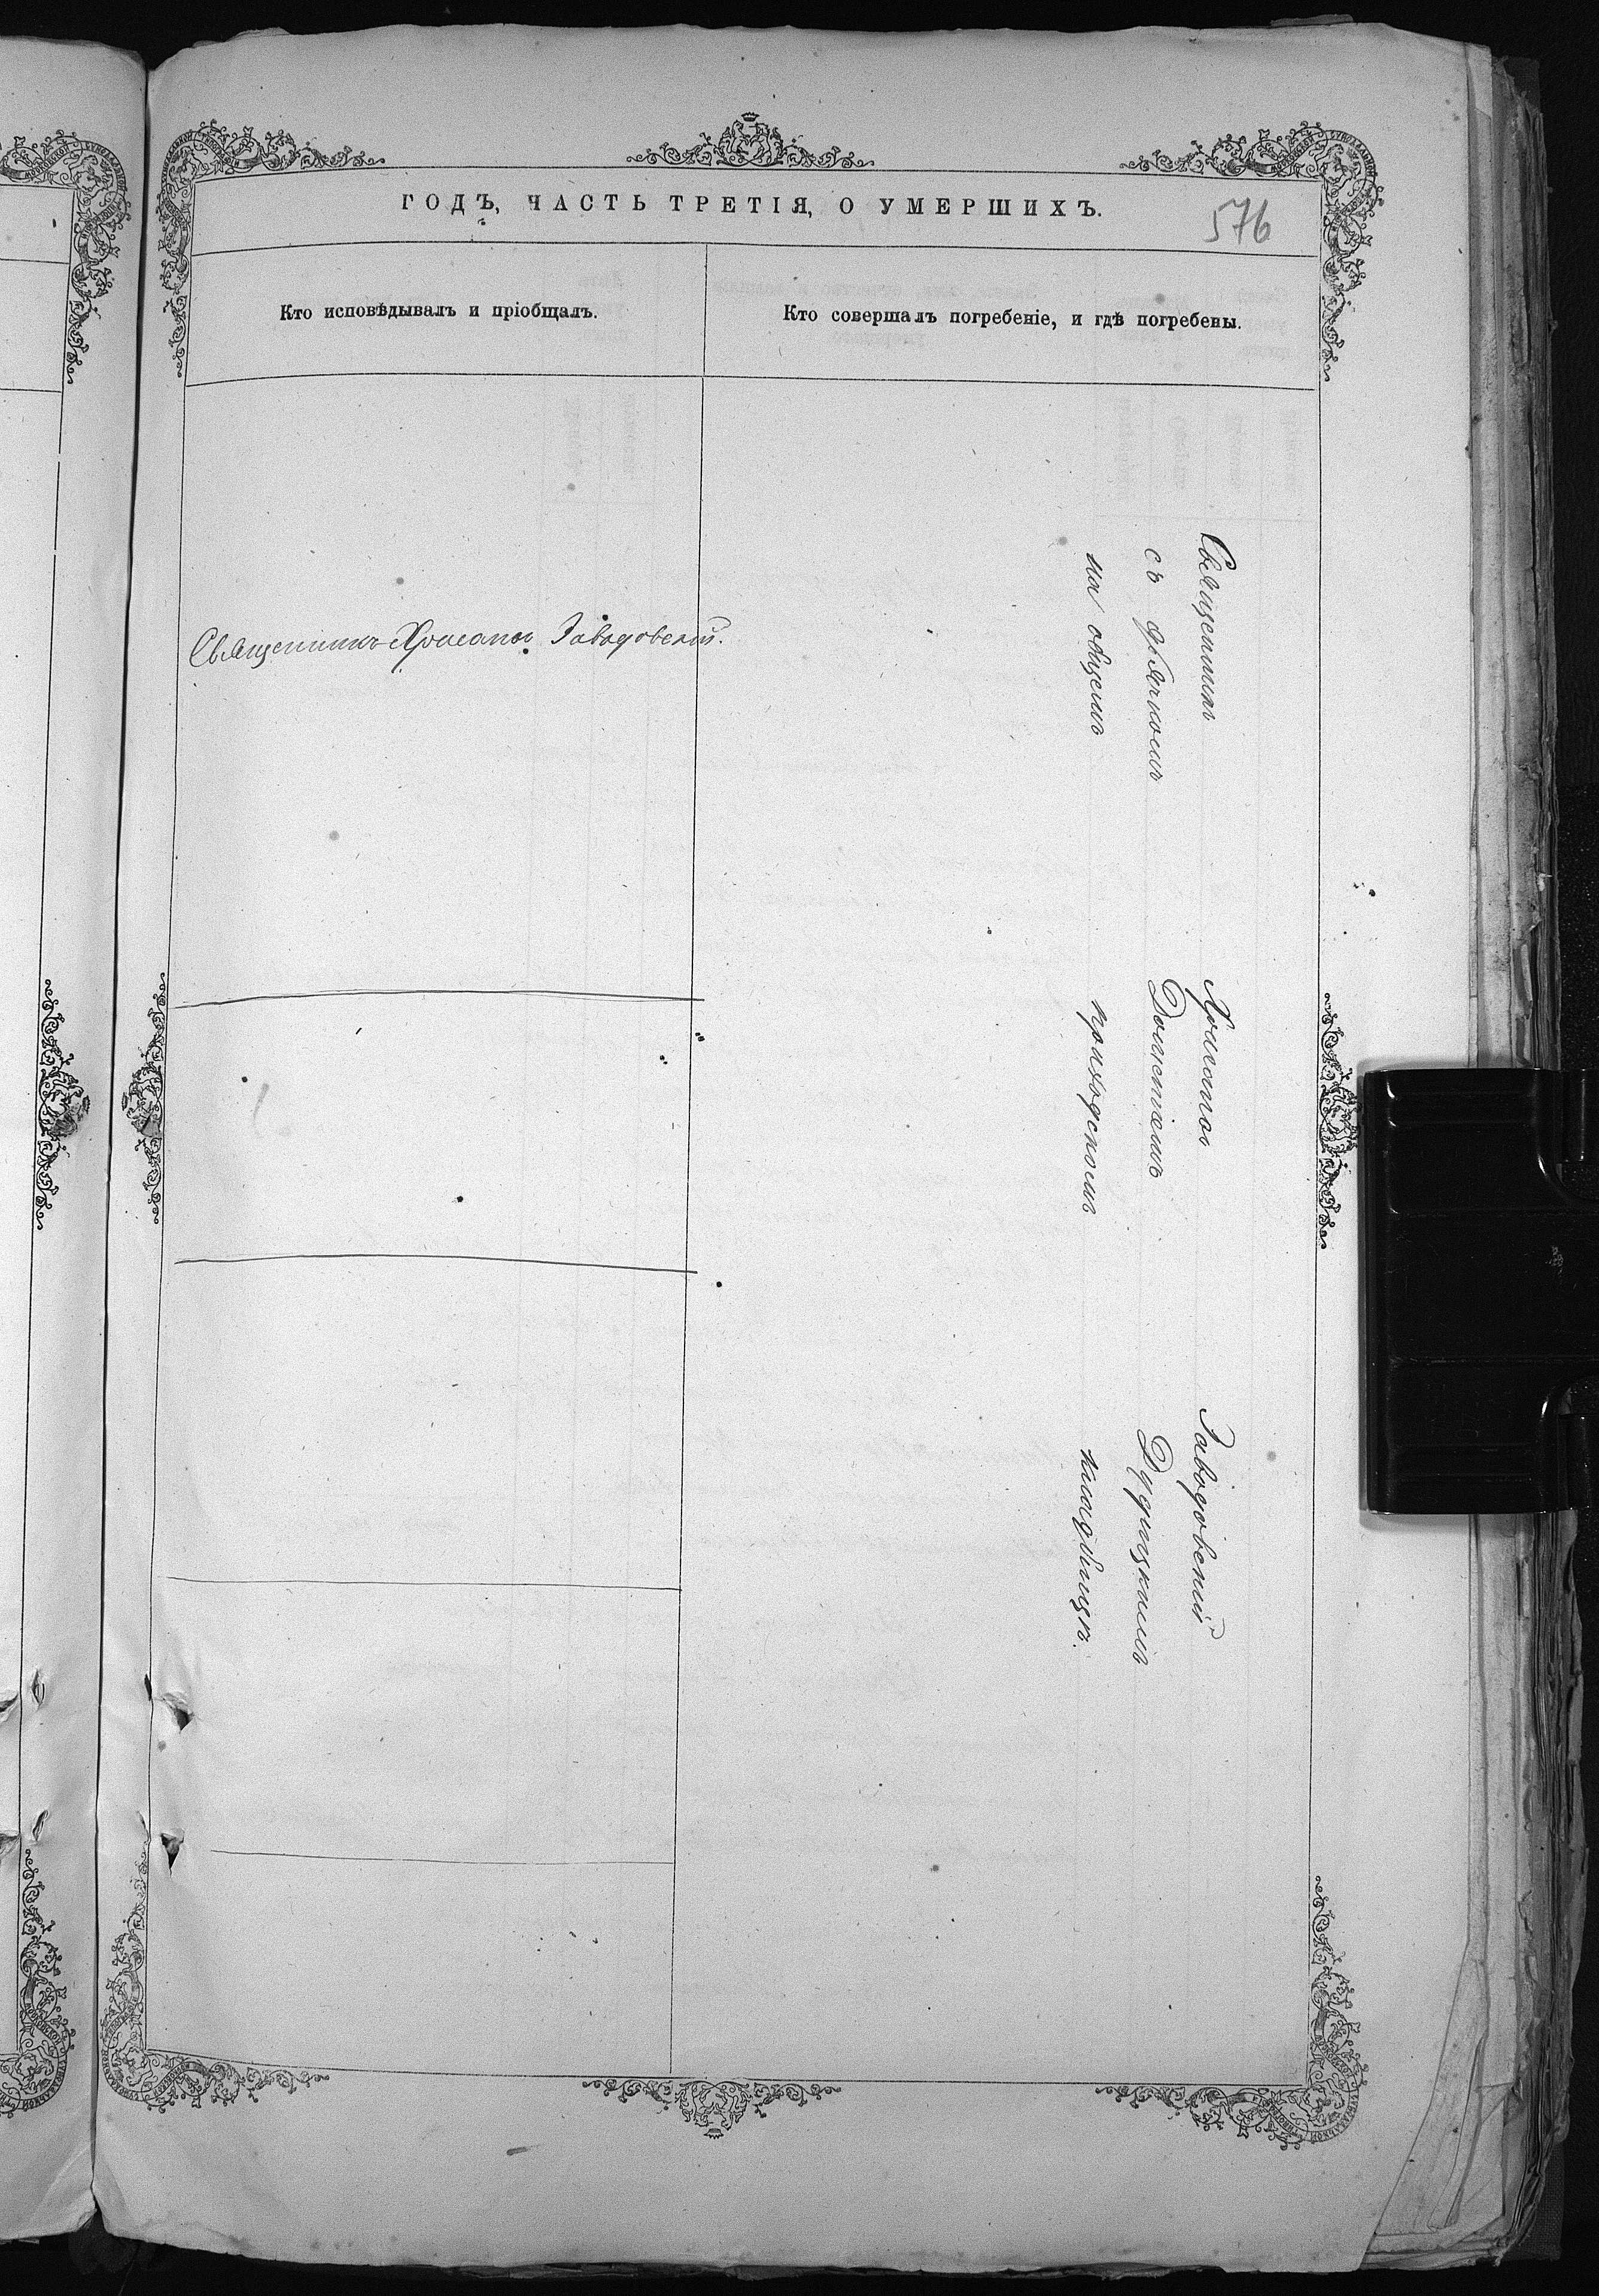 ГОДЪ, ЧАСТЬ ТРЕТІЯ, О УМЕРШИХЪ.
576
Кто исповѣдывалъ и пріобщалъ.
Кто совершалъ погребеніе, и гдѣ погребены.
Священникъ Хрисанѳъ Завадовскій.
Священникъ Хрисанѳъ Завадовскій
съ дьячкомъ Дудицкимъ
на общемъ приходскомъ кладбищѣ.